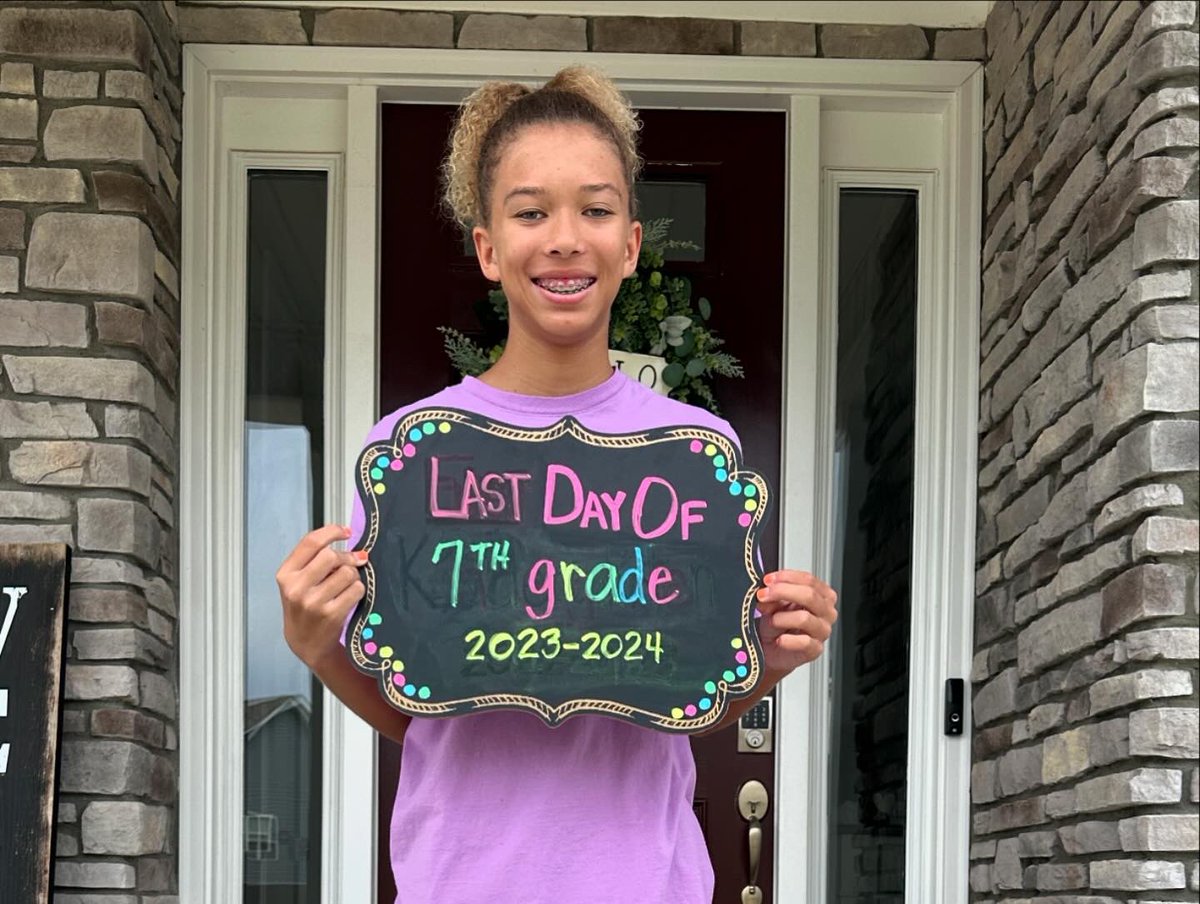 LAST DAY OF
7TH grade
2023-2024
LO